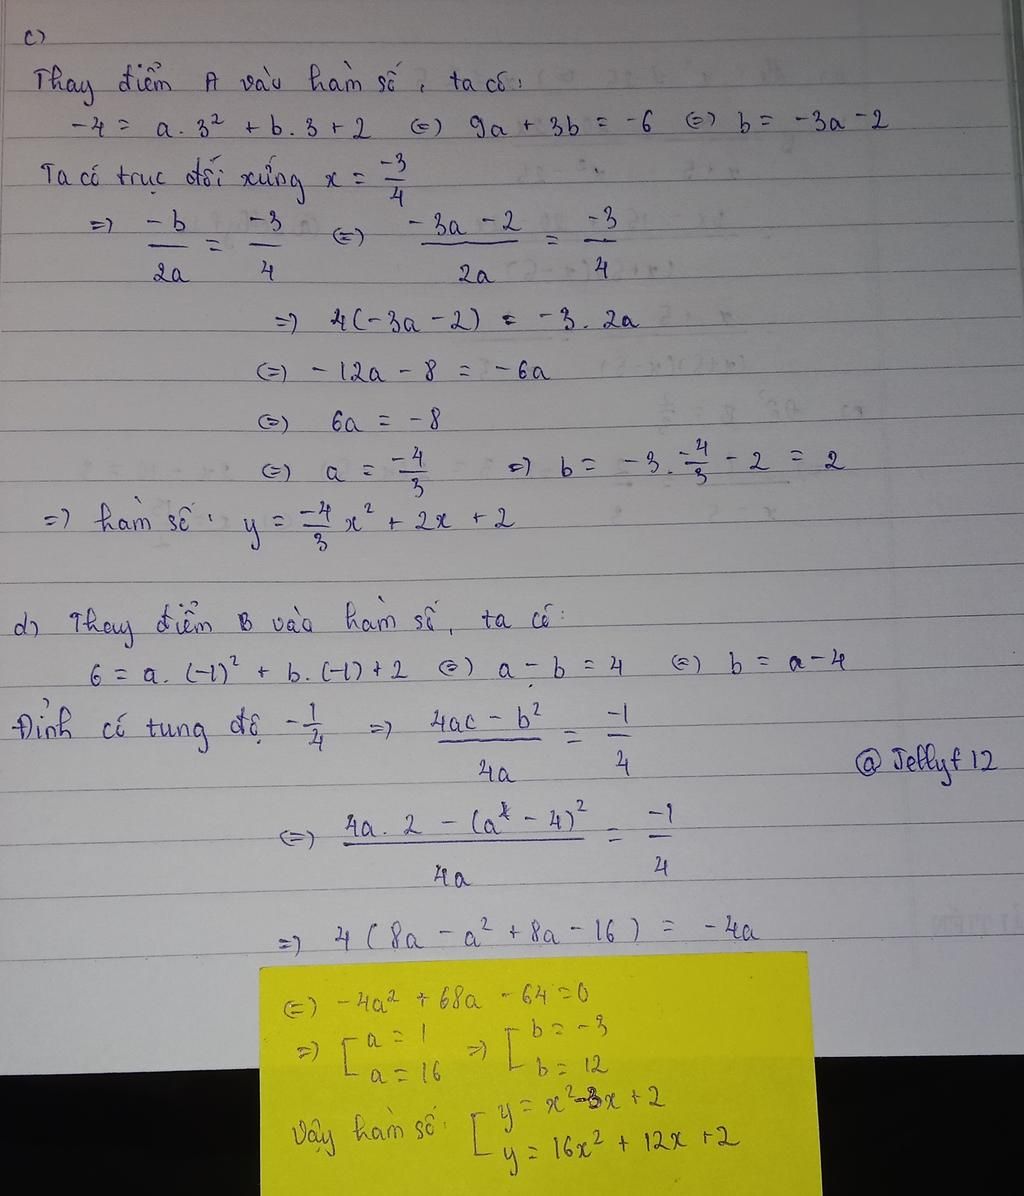 c)
Thay điểm A vào hàm số, ta có:
-4 = a.3² + b.3 + 2 (=) 9a + 3b = -6 (=) b = -3a - 2
Ta có trục đối xứng x = -3/4
=) -b/2a = -3/4 (=) -3a - 2/2a = -3/4
=) 4(-3a - 2) = -3.2a
(=) -12a - 8 = -6a
(=) 6a = -8
(=) a = -4/3 =) b = -3.-4/3 - 2 = 2
=) hàm số: y = -4/3 x² + 2x + 2
d) Thay điểm B vào hàm số, ta có:
6 = a.(-1)² + b.(-1) + 2 (=) a - b = 4 (=) b = a - 4
Đỉnh có tung độ -1/4 =) 4ac - b²/4a = -1/4
@Jellyf12
(=) 4a.2 - (a - 4)²/4a = -1/4
=) 4(8a - a² + 8a - 16) = -4a
(=) -4a² + 68a - 64 = 0
=) [a = 1 =) [b = -3
a = 16 b = 12
Vậy hàm số: [y = x² - 3x + 2
y = 16x² + 12x + 2